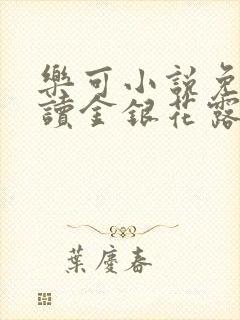 樂可小說免
讀金銀花露
葉慶春